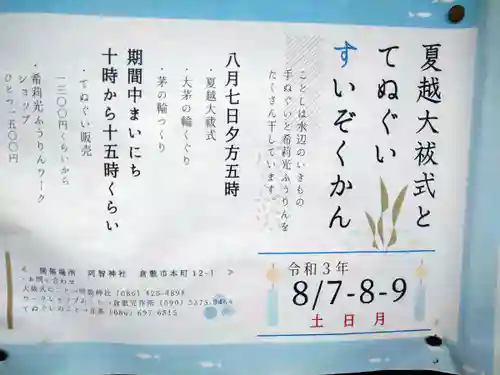 夏越大祓式と
てぬぐい
すいぞくかん
ことしは水辺のいきもの
手ぬぐいと希莉光ふうりんを
たくさん干しています
八月七日夕方五時
・夏越大祓式
・大茅の輪くぐり
・茅の輪つくり
期間中まいにち
十時から十五時くらい
・てぬぐい販売
一三〇〇円くらいから
・希莉光ふうりんワーク
ショップ
ひとつ一五〇〇円
令和3年
8/7-8-9
土 日 月
< 開催場所 阿智神社 倉敷市本町12-1 >
・お問い合わせ
大祓式のこと→阿智神社 (086) 425-4898